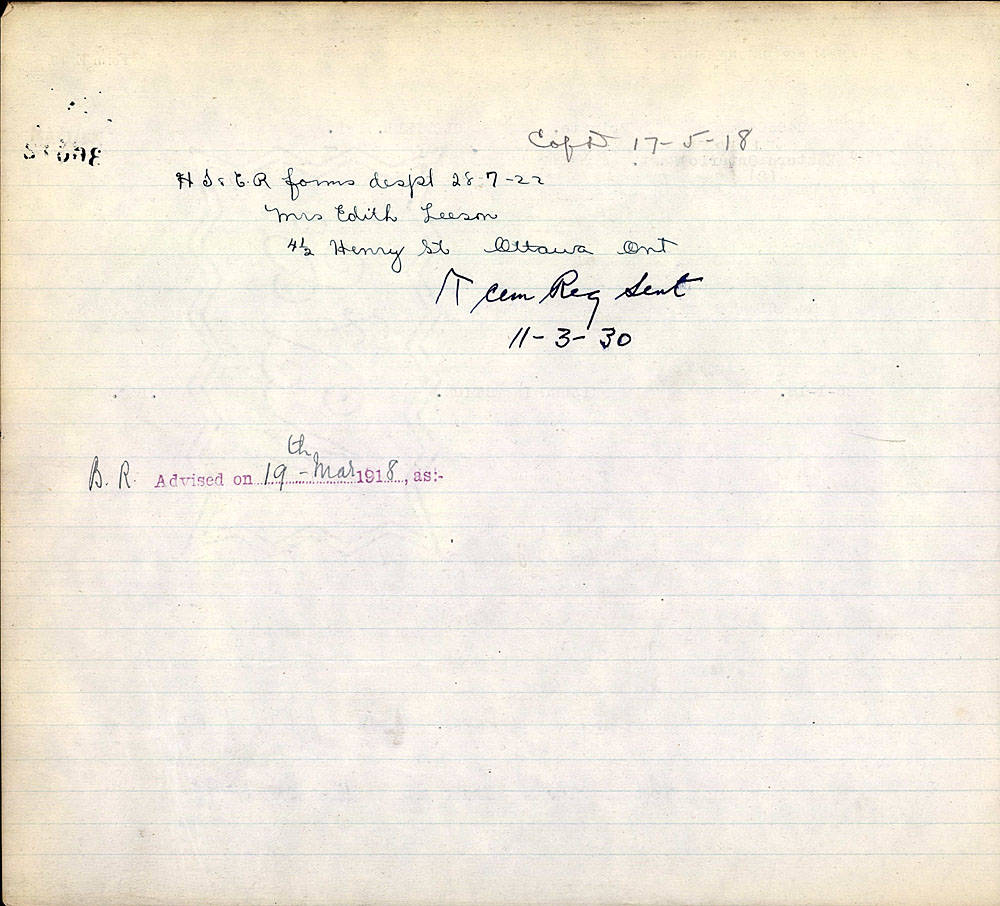 17-5-18
H S & E.R forms despt 28-7-22
Mrs Edith Leeson
4½ Henry St Ottawa Ont
cem Reg Sent
11-3-30
B. R. Advised on 19th Mar 1918, as:-